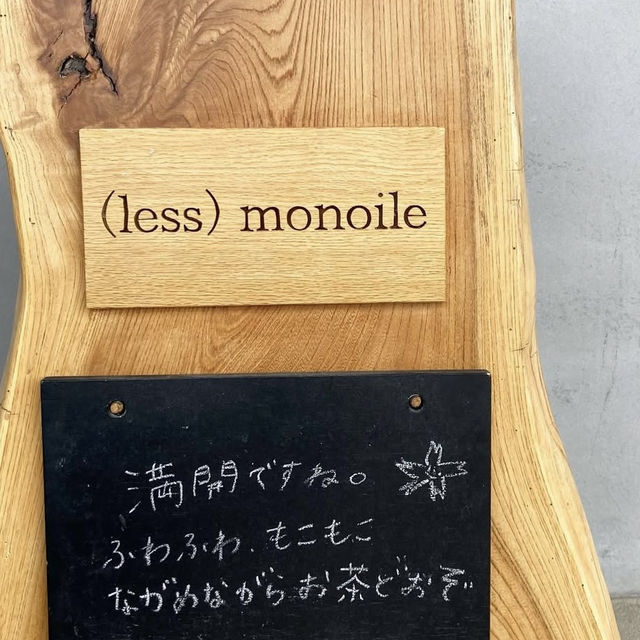 (less) monoile
満開ですね。
ふわふわ、もこもこ
ながめながらお茶どおぞ